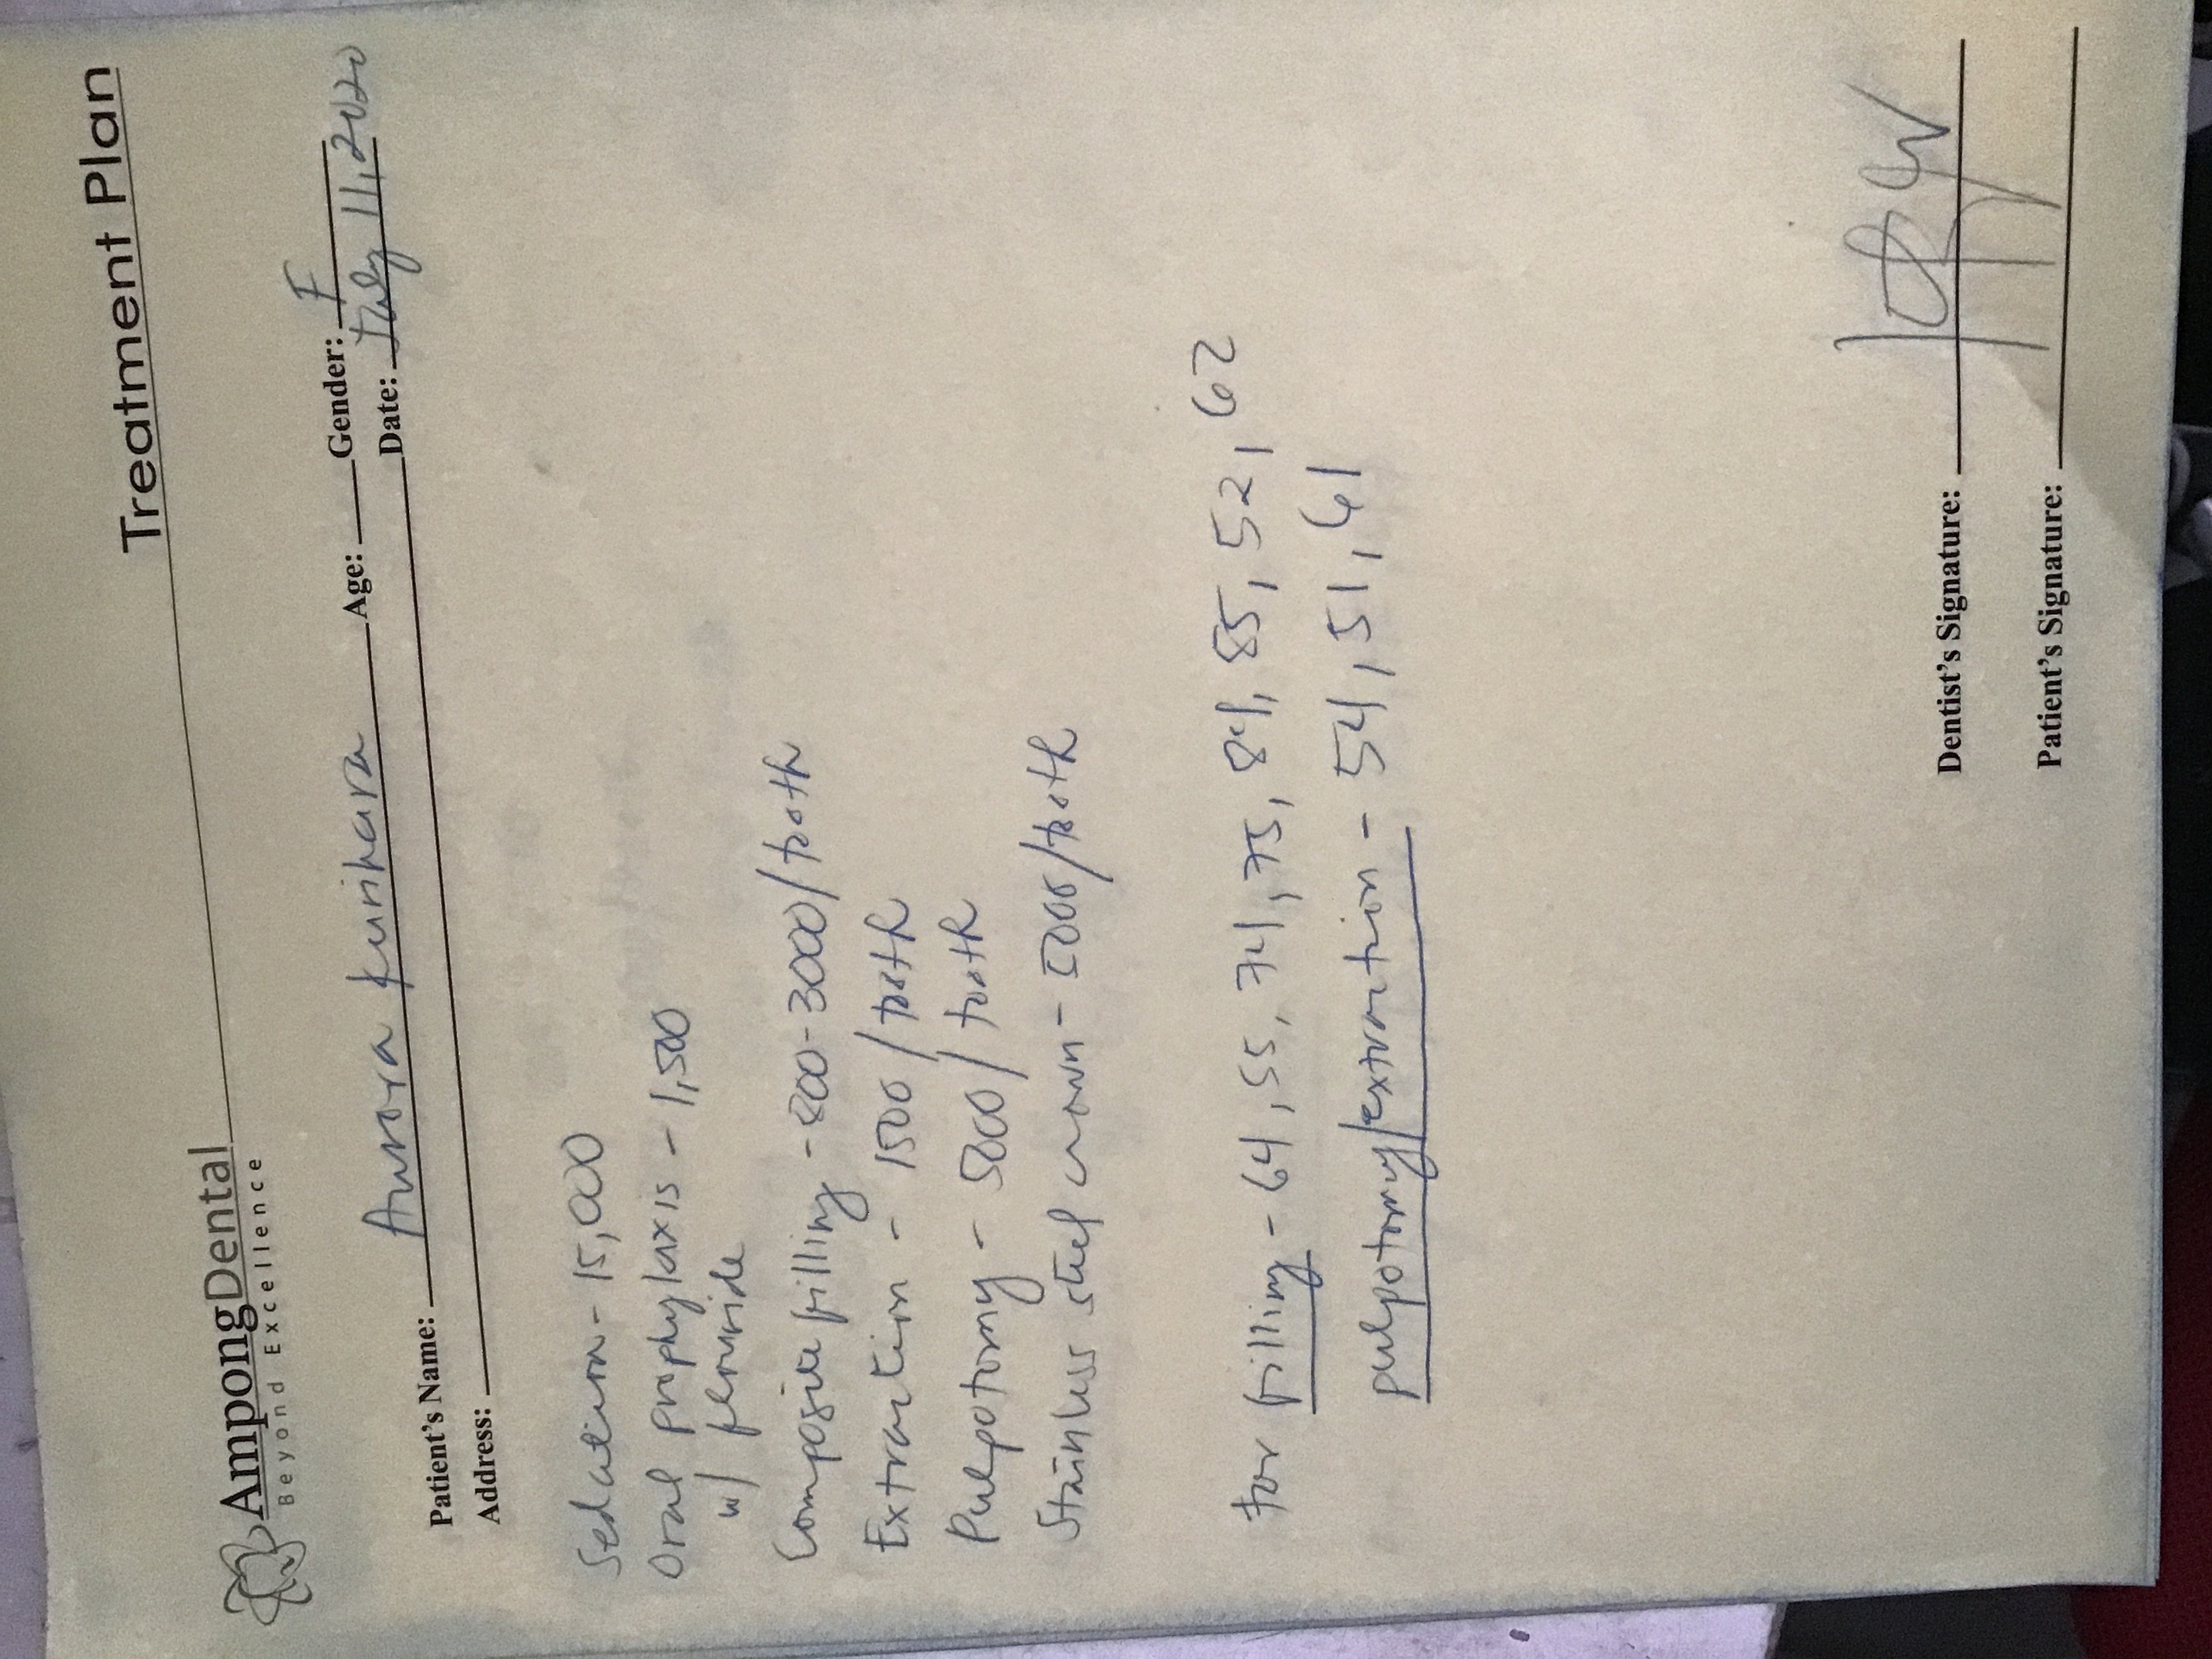 AmpongDental
Beyond Excellence
Treatment Plan
Patient's Name: Aurora Kurihara Age: Gender: F
Address: Date: July 11, 2020
Sedation - 15,000
Oral prophylaxis - 1,500
w/ flouride
Composite filling - 800-3000/tooth
Extraction - 1500/tooth
Pulpotomy - 5000/tooth
Stainless steel crown - 5000/tooth
for filling - 64, 55, 74, 75, 84, 85, 52, 62
pulpotomy/extraction - 54, 51, 61
Dentist's Signature:
Patient's Signature: